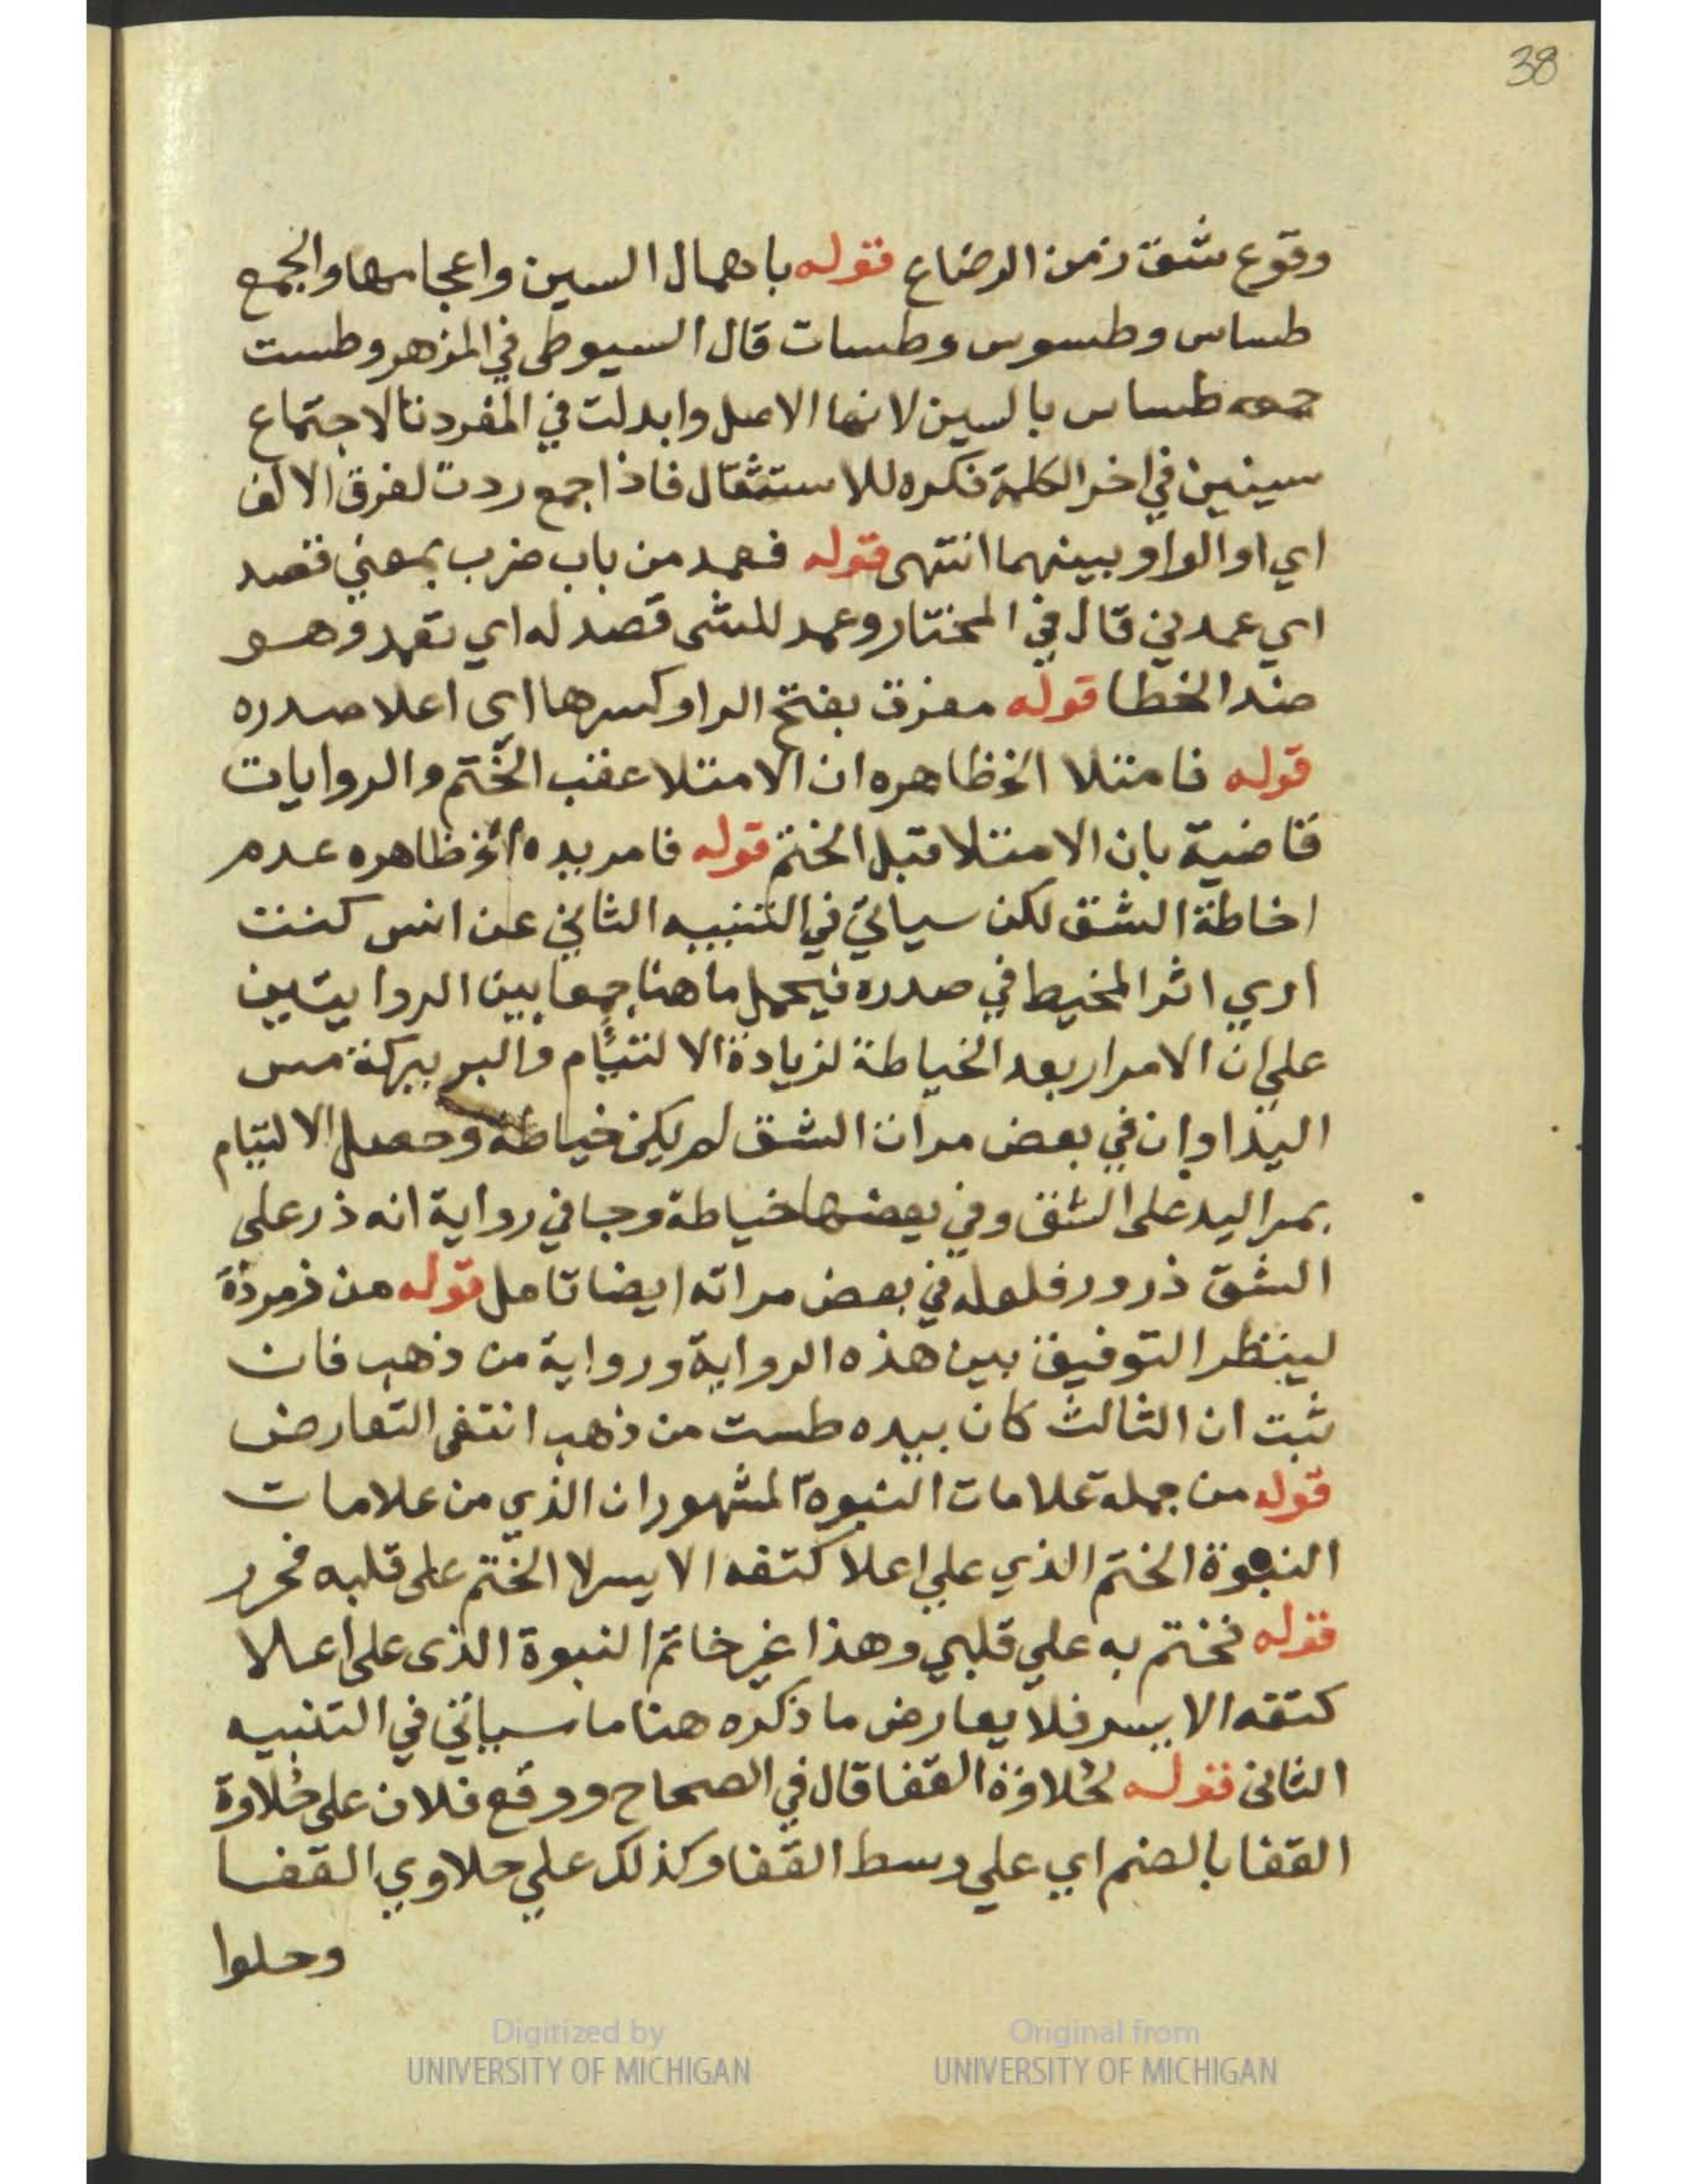 38
وقوع شق زمن الرضاع قوله باهمال السين واعجامها والجمع
طساس وطسوس وطسات قال السيوطى في المزهر وطست
جمعه طساس بالسين لانها الاصل وابدلت في المفرد تا لاجتماع
سينين في اخر الكلمة فكره للاستثقال فاذا جمع ردت لفرق الالف
اي او الواو بينهما انتهى قوله فعمد من باب ضرب بمعني قصد
اي عمدني قال في المختار وعمد للشى قصد له اي تعمد وهو
ضد الخطا قوله مفرق بفتح الرا وكسرها اى اعلا صدره
قوله فامتلا الخ ظاهره ان الامتلا عقب الختم والروايات
قاضية بان الامتلا قبل الختم قوله فامر يده الخ ظاهره عدم
اخاطة الشق لكن سياتي في التنبيه الثاني عن انس كنت
اري اثر المخيط في صدره فيحمل ما هنا جمعا بين الروايتين
علي ان الامرار بعد الخياطة لزيادة الالتيئام والبر ببركة مس
اليد او ان في بعض مرات الشق لم يكن خياطة وحصل الالتيام
بمر اليد على الشق وفي بعضها خياطة وجا في رواية انه ذر على
الشق ذرور فلعله في بعض مراته ايضا تامل قوله من زمرذة
لينظر التوفيق بين هذه الرواية ورواية من ذهب فان
ثبت ان الثالث كان بيده طست من ذهب انتفى التعارض
قوله من جملة علامات النبوة المشهور ان الذي من علامات
النبوة الختم الذي علي اعلا كتفه الايسر لا الختم على قلبه فحرر
قوله فختم به علي قلبي وهذا غير خاتم النبوة الذى على اعلا
كتفه الايسر فلا يعارض ما ذكره هنا ما سياتي في التنبيه
الثانى قوله لحُلاوة القفا قال في الصحاح ووقع فلان على حُلاوة
القفا بالضم اي علي وسط القفا وكذلك علي حلاوي القفا
وحلوا
Digitized by UNIVERSITY OF MICHIGAN
Original from UNIVERSITY OF MICHIGAN